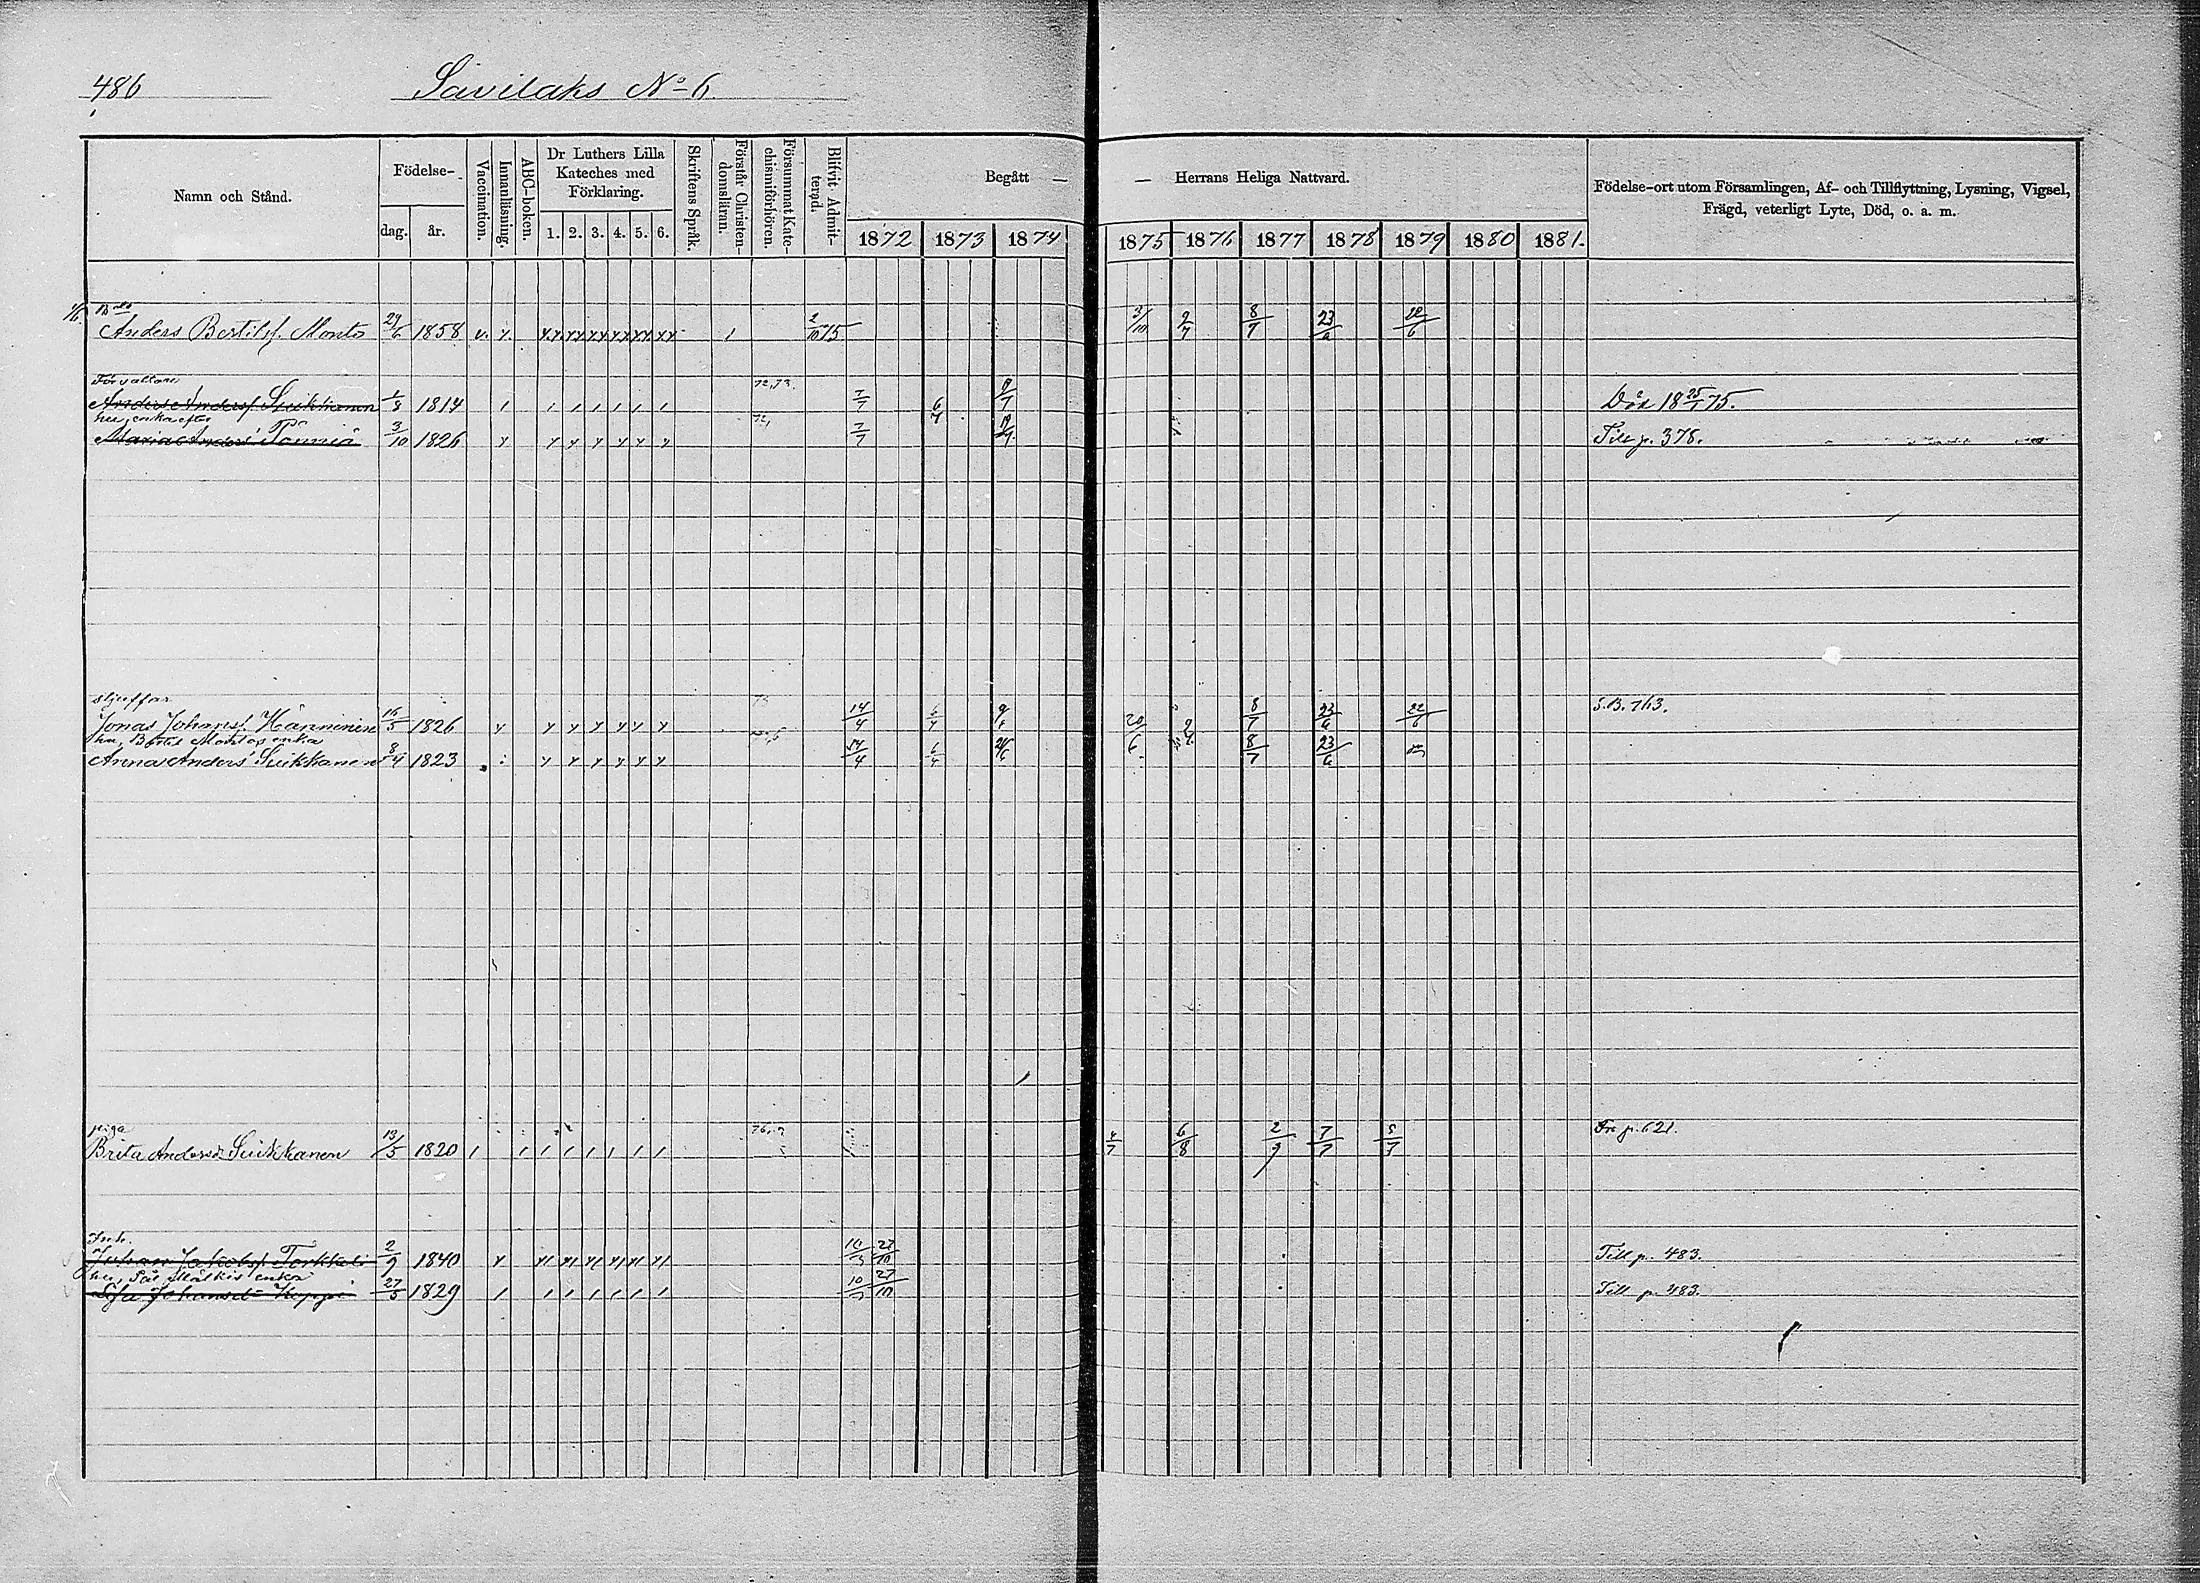 486
Savilaks No 6
Namn och Stånd.
Födelse-
dag.
år.
Vaccination.
Innanläsning.
ABC-boken.
Dr Luthers Lilla
Kateches med
Förklaring.
1. 2. 3. 4. 5. 6.
Skriftens Språk.
Förstår Christen-
domsläran.
Försummat Kate-
chismiförhören.
Blifvit Admit-
terad.
Begått —
— Herrans Heliga Nattvard.
1872 1873 1874
1875 1876 1877 1878 1879 1880 1881.
Födelse-ort utom Församlingen, Af- och Tillflyttning, Lysning, Vigsel,
Frägd, veterligt Lyte, Död, o. a. m.
Anders Bertilsf. Monto 29/6 1858 2/10 75 3/10 2/7 8/7 23/6 22/6
72, 73.
Anders Andersf. Suikkanen 1814 7/7 6/7 Död 18 25/1 75.
hu, enka efter 72,
Maria Anders 3/10 1826 7/7 Till p. 378.
Jonas Johansf. Hänninen 16/5 1826 14/4 6/4 20/6 8/7 23/6 22/6 S.B. 763.
hu, Bertil Montos enka
Anna Anders Suikkanen 8/4 1823 14/4 6/4 8/7 23/6
piga
Brita Andersd. Suikkanen 13/5 1820 6/8 2/9 7/7 5/7 Fr. p. 621.
Inh.
Johan Jakobsf. Torkkeli 2/9 1840 10/3 27/10 Till p. 483.
Johansd. Koppi 27/5 1829 10/3 27/10 Till p. 483.